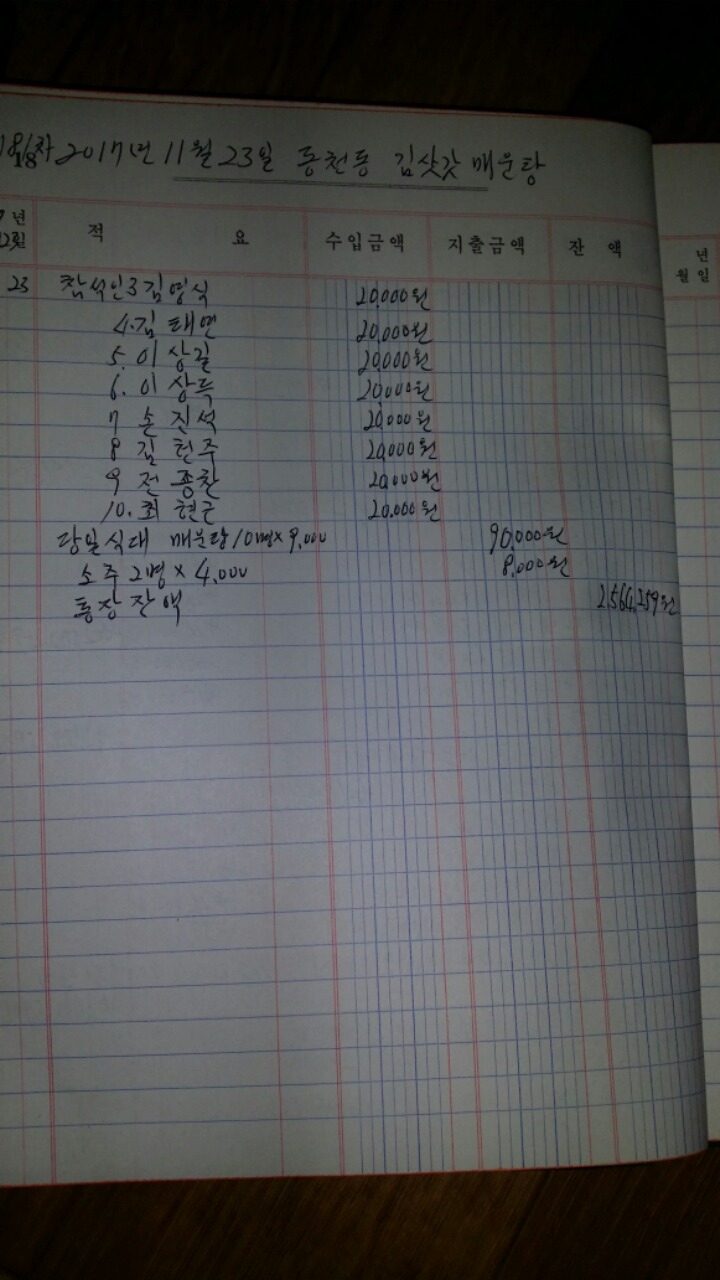 차 2017년 11월 23일 동천동 김삿갓 매운탕
년
적 요 수입금액 지출금액 잔 액
년
월 일
23 참석인 3 김영식 20,000원
4. 김태연 20,000원
5. 이상길 20,000원
6. 이상득 20,000원
7 손진석 20,000원
8 김현주 20,000원
9 전종찬 20,000원
10. 최현근 20,000원
당일식대 매운탕 10명 × 9,000 90,000원
소주 2명 × 4,000 8,000원
통장잔액 2,564,259원